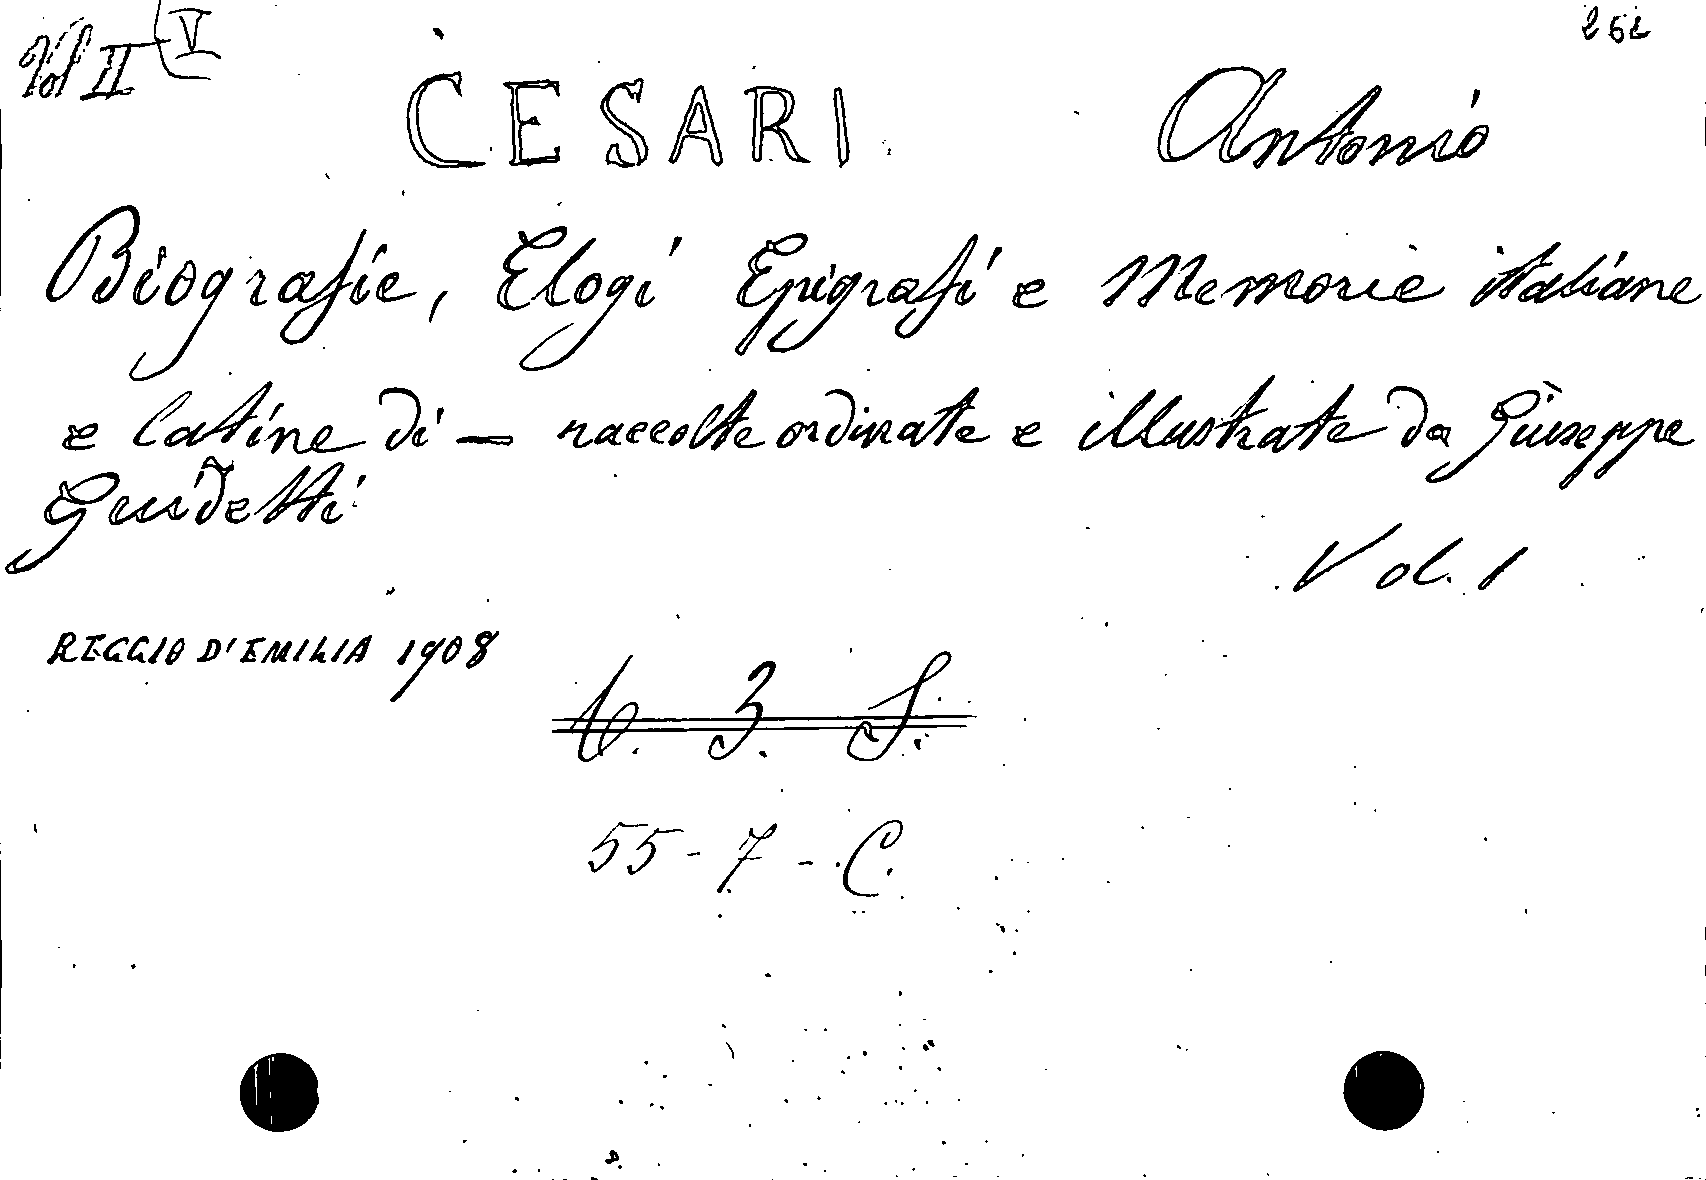 Vol II V 252
CESARI Antonio
Biografie, Elogi Epigrafi e Memorie italiane
e latine di — raccolte ordinate e illustrate da Giuseppe
Guidetti
Vol. 1
REGGIO D'EMILIA 1908
55 - 7 - C.